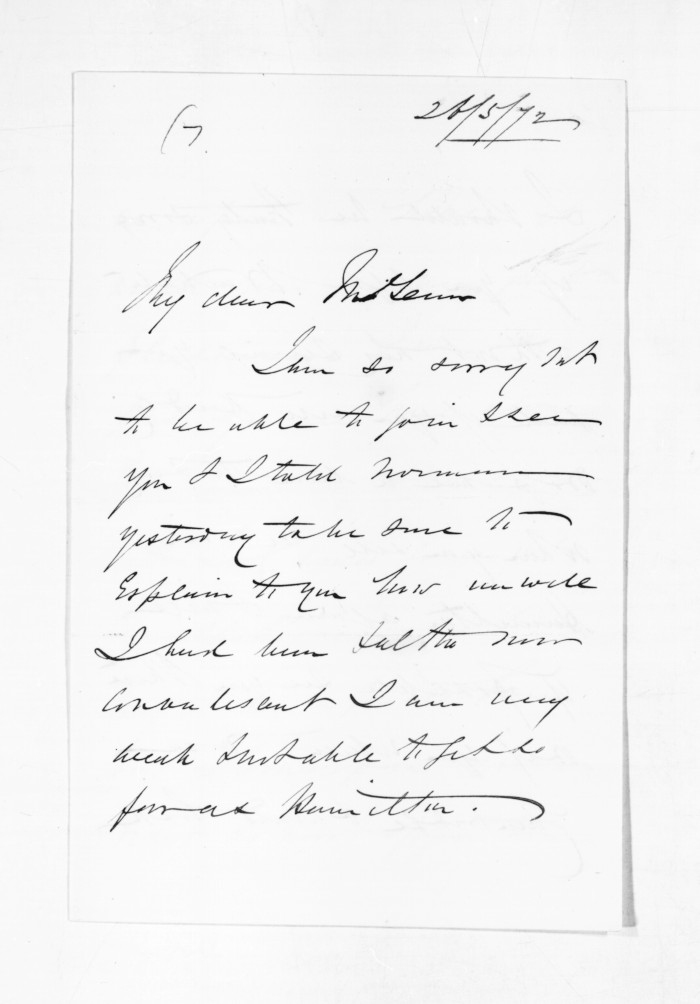 26/5/72
My dear McLean
I am so sorry not
to be able to join & see
you & I told Norman
yesterday to be sure to
explain to you how unwell
I had been & altho now
convalescent I am very
weak & not able to get so
far as Hamilton.